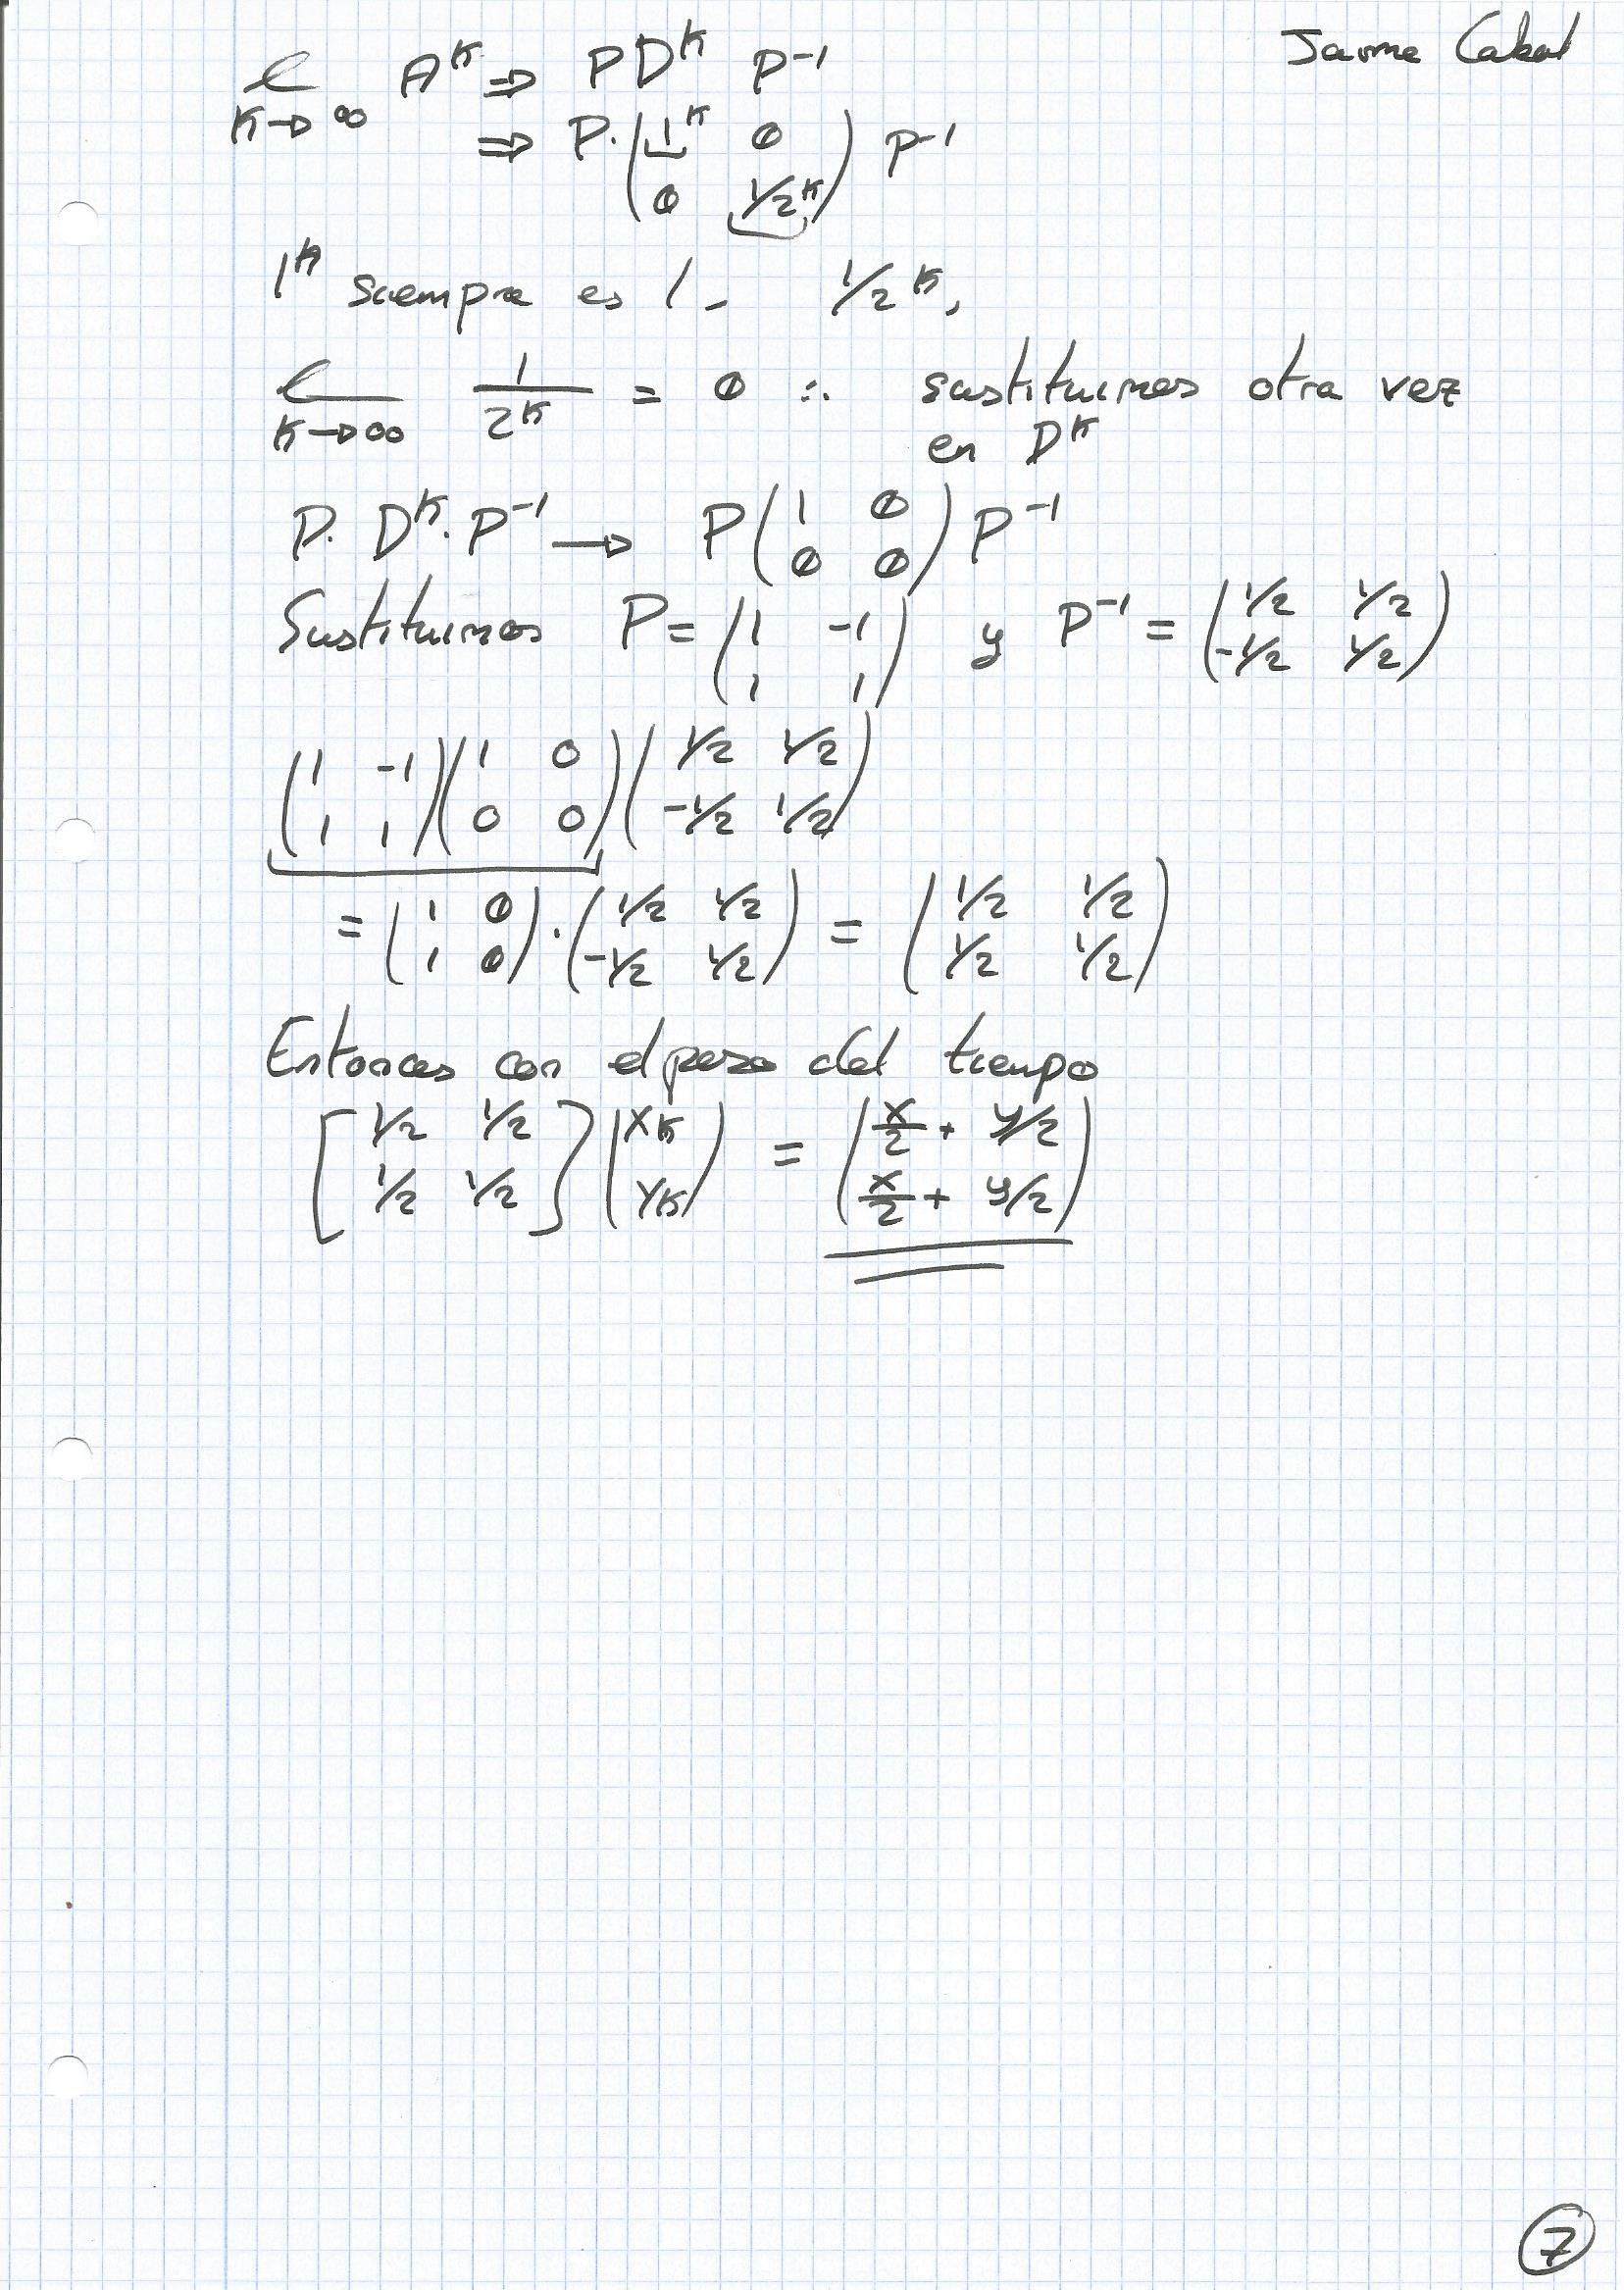 Jaime Cabal
ℓ A^K ⇒ P D^K P^-1
K→∞ ⇒ P·(1^K 0
0 1/2^K) P^-1
1^K siempre es 1 - 1/2^K,
ℓ 1/2^K = 0 ∴ sustituimos otra vez
K→∞ en D^K
P· D^K· P^-1 → P(1 0
0 0) P^-1
Sustituimos P = (1 -1
1 1) y P^-1 = (1/2 1/2
-1/2 1/2)
(1 -1
1 1)(1 0
0 0)(1/2 1/2
-1/2 1/2)
= (1 0
1 0)·(1/2 1/2
-1/2 1/2) = (1/2 1/2
1/2 1/2)
Entonces con el paso del tiempo
[1/2 1/2
1/2 1/2](XK
YK) = (x/2 + y/2
x/2 + y/2)
7